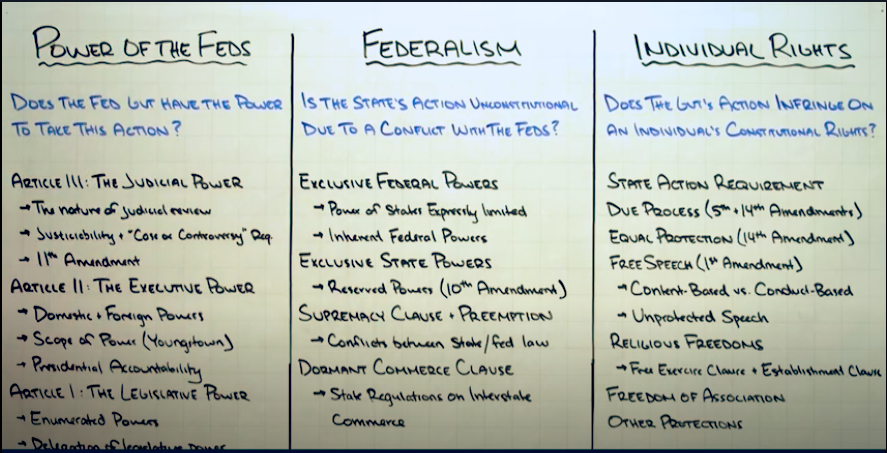 POWER OF THE FEDS
DOES THE FED GVT HAVE THE POWER
TO TAKE THIS ACTION?
ARTICLE III: THE JUDICIAL POWER
→ The nature of judicial review
→ Justiciability + "Case or Controversy" Req.
→ 11th Amendment
ARTICLE II: THE EXECUTIVE POWER
→ Domestic + Foreign Powers
→ Scope of Power (Youngstown)
→ Presidential Accountability
ARTICLE I: THE LEGISLATIVE POWER
→ Enumerated Powers
→ Delegation of legislative power
FEDERALISM
IS THE STATE'S ACTION UNCONSTITUTIONAL
DUE TO A CONFLICT WITH THE FEDS?
EXCLUSIVE FEDERAL POWERS
→ Power of States Expressly limited
→ Inherent Federal Powers
EXCLUSIVE STATE POWERS
→ Reserved Powers (10th Amendment)
SUPREMACY CLAUSE + PREEMPTION
→ Conflicts between State/fed law
DORMANT COMMERCE CLAUSE
→ State Regulations on Interstate
Commerce
INDIVIDUAL RIGHTS
DOES THE GVT'S ACTION INFRINGE ON
AN INDIVIDUAL'S CONSTITUTIONAL RIGHTS?
STATE ACTION REQUIREMENT
DUE PROCESS (5th + 14th Amendments)
EQUAL PROTECTION (14th Amendment)
FREE SPEECH (1st Amendment)
→ Content-Based vs. Conduct-Based
→ Unprotected Speech
RELIGIOUS FREEDOMS
→ Free Exercise Clause + Establishment Clause
FREEDOM OF ASSOCIATION
OTHER PROTECTIONS